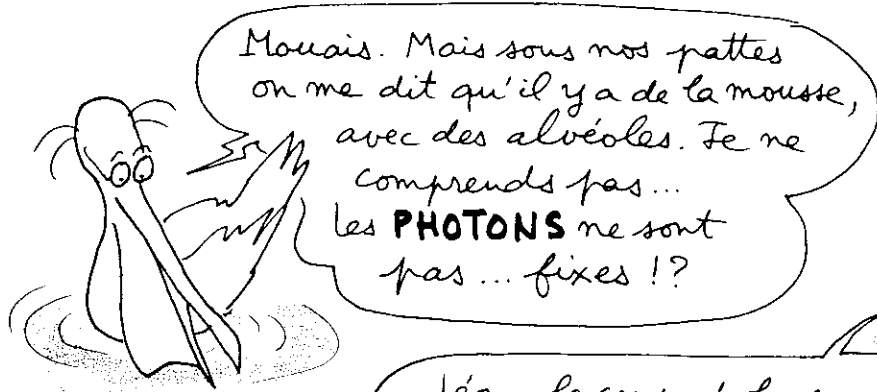 Mouais. Mais sous nos pattes
on me dit qu'il y a de la mousse,
avec des alvéoles. Je ne
comprends pas...
les PHOTONS ne sont
pas... fixes !?